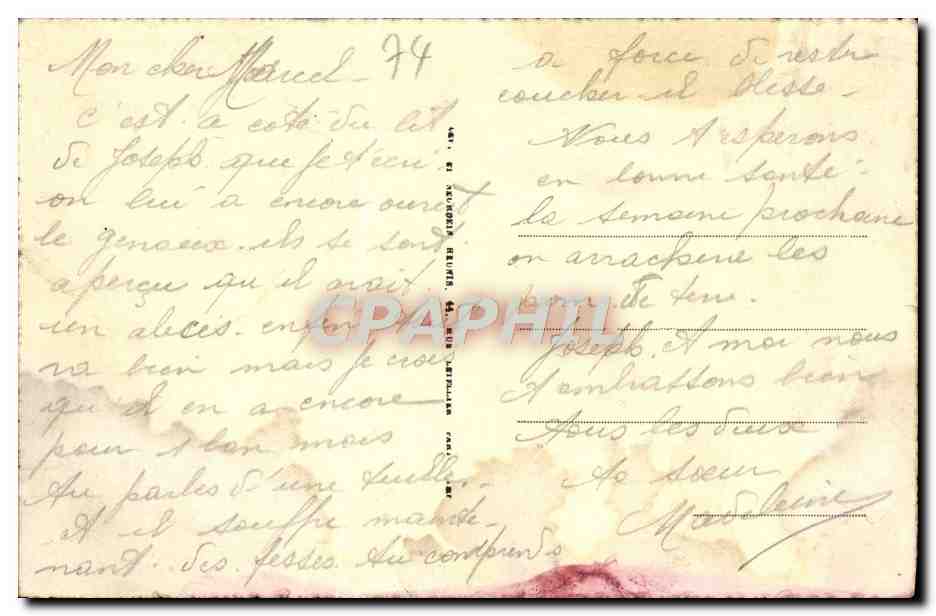 Mon cher Marcel
74
C'est a coté du lit
de Joseph que je t'écri
on lui a encore ouvert
le genoux. ils se sont
aperçu qu'il avait
un abcés. enfin
va bien mais je crois
qu'il en a encore
pour 1 bon mois
tu parles d'une tuile..
et il souffre mainte-
nant. des fesses tu comprends
a force de rester
coucher il blesse.
Nous t'esperons
en bonne santé.
la semaine prochaine
on arrachera les
pom de terre.
Joseph. et moi nous
t'embrassons bien
tous les deux
ta sœur
Madeleine
CPAPHIL
REUNIS. 44, RUE LETELLIER